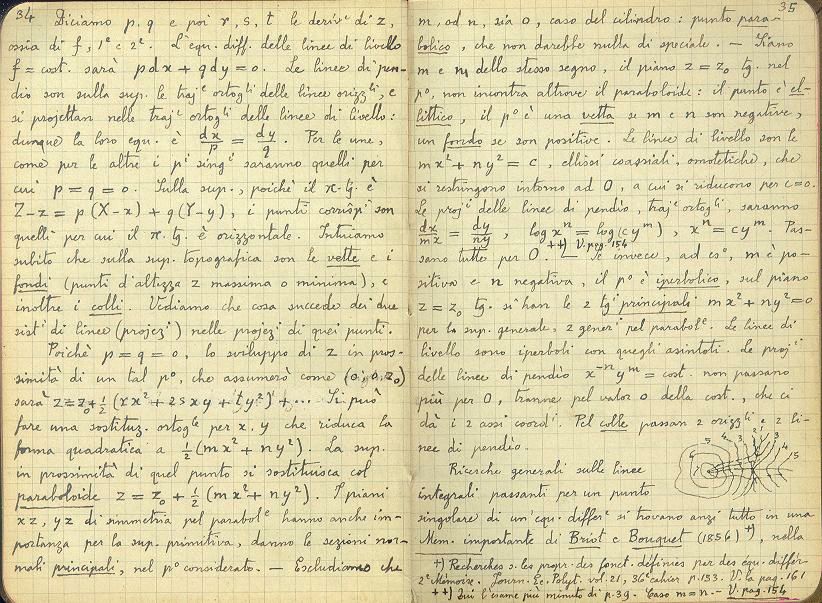 34
Diciamo p, q e poi r, s, t le deriv^e di z,
ossia di f, 1^e e 2^e. L'equ. diff. delle linee di livello
f = cost. sarà p dx + q dy = 0. Le linee di pen-
dio son sulla sup. le traj^e ortog^li delle linee orizz^li, e
si projettan nelle traj^e ortog^li delle linee di livello:
dunque la loro equ. è dx/p = dy/q. Per le une,
come per le altre i p^i sing^i saranno quelli per
cui p = q = 0. Sulla sup., poichè il π. tg. è
Z-z = p(X-x) + q(Y-y), i punti corrisp^i son
quelli per cui il π. tg. è orizzontale. Intuiamo
subito che sulla sup. topografica son le vette e i
fondi (punti d'altezza z massima o minima), e
inoltre i colli. Vediamo che cosa succede dei due
sist^i di linee (projez^i) nelle projez^i di quei punti.
Poichè p = q = 0, lo sviluppo di z in pros-
simità di un tal p^o, che assumerò come (0,0,z₀)
sarà z = z₀ + ½ (rx² + 2sxy + ty²) + ... Si può
fare una sostituz. ortog^le per x, y che riduca la
forma quadratica a ½ (mx² + ny²). La sup.
in prossimità di quel punto si sostituisca col
paraboloide z = z₀ + ½ (mx² + ny²). I piani
xz, yz di simmetria pel parabol^e hanno anche im-
portanza per la sup. primitiva, danno le sezioni nor-
mali principali, nel p^o considerato. — Escludiamo che
35
m, od n, sia 0, caso del cilindro: punto para-
bolico, che non darebbe nulla di speciale. — Siano
m e n dello stesso segno, il piano z = z₀ tg. nel
p^o, non incontra altrove il paraboloide: il punto è el-
littico, il p^o è una vetta se m e n son negative,
un fondo se son positive. Le linee di livello son le
mx² + ny² = c, ellissi coassiali, omotetiche, che
si restringono intorno ad O, a cui si riducono per c=0.
Le proj^i delle linee di pendio, traj^e ortog^li, saranno
dx/mx = dy/ny, log x^n = log (c y^m), x^n = c y^m. Pas-
sano tutte per O. ++) V. pag. 154 — Se invece, ad es^o, m è po-
sitiva e n negativa, il p^o è iperbolico, sul piano
z = z₀ tg. si han le 2 tg^i principali mx² + ny² = 0
per la sup. generale, 2 gener^i pel parabol^e. Le linee di
livello sono iperboli con quegli asintoti. Le proj^i
delle linee di pendio x^-n y^m = cost. non passano
più per O, tranne pel valor 0 della cost., che ci
dà i 2 assi coord^i. Pel colle passan 2 orizz^li e 2 li-
nee di pendio.
Ricerche generali sulle linee
integrali passanti per un punto
singolare di un'equ. differ^e si trovano anzi tutto in una
Mem. importante di Briot e Bouquet (1856) +), nella
+) Recherches s. les propr. des fonct. définies par des équ. différ.
2^e Mémoire. Journ. Ec. Polyt. vol. 21, 36^e cahier p. 133. V. la pag. 161
++) Qui l'esame più minuto di p. 39. Caso m = n. — V. pag. 154